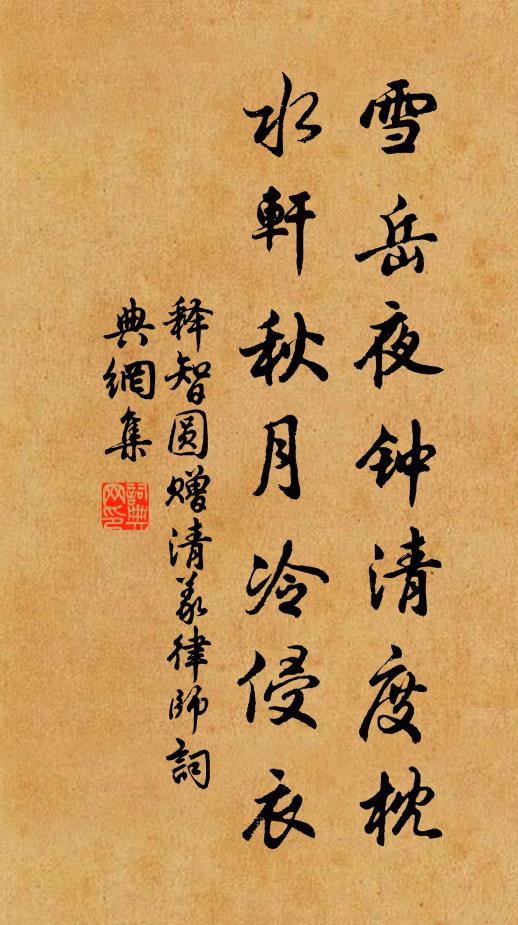 雪岳夜钟清度枕
水軒秋月冷侵衣
释智圆赠清义律師詞
典網集
詞典网印